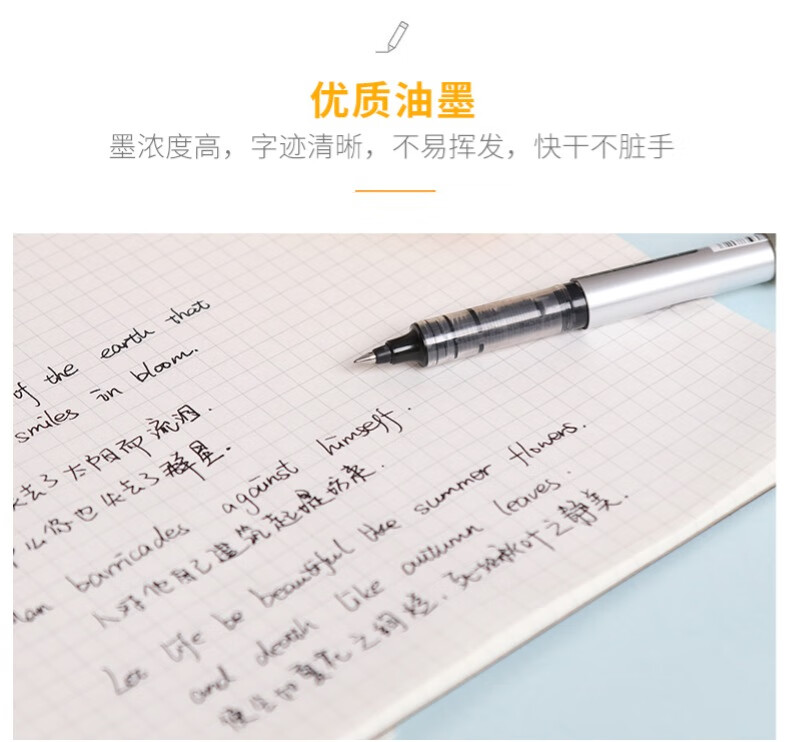 优质油墨
墨浓度高，字迹清晰，不易挥发，快干不脏手
of the earth that
smiles in bloom.
失去了太阳而流泪.
么你也失去了群星.
man barricades against himself.
人对他自己建筑起堤防来.
Let life be beautiful like summer flowers.
and death like autumn leaves.
使生如夏花之绚烂. 死如秋叶之静美.